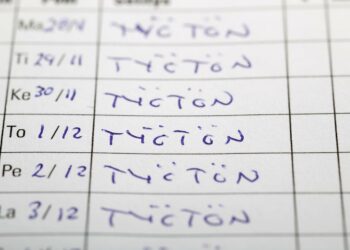 Ma 28/11 TYÖTÖN
Ti 29/11 TYÖTÖN
Ke 30/11 TYÖTÖN
To 1/12 TYÖTÖN
Pe 2/12 TYÖTÖN
La 3/12 TYÖTÖN